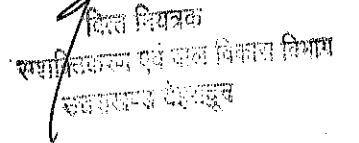 वित्त नियंत्रक
एवं बाल विकास विभाग
उत्तराखण्ड देहरादून